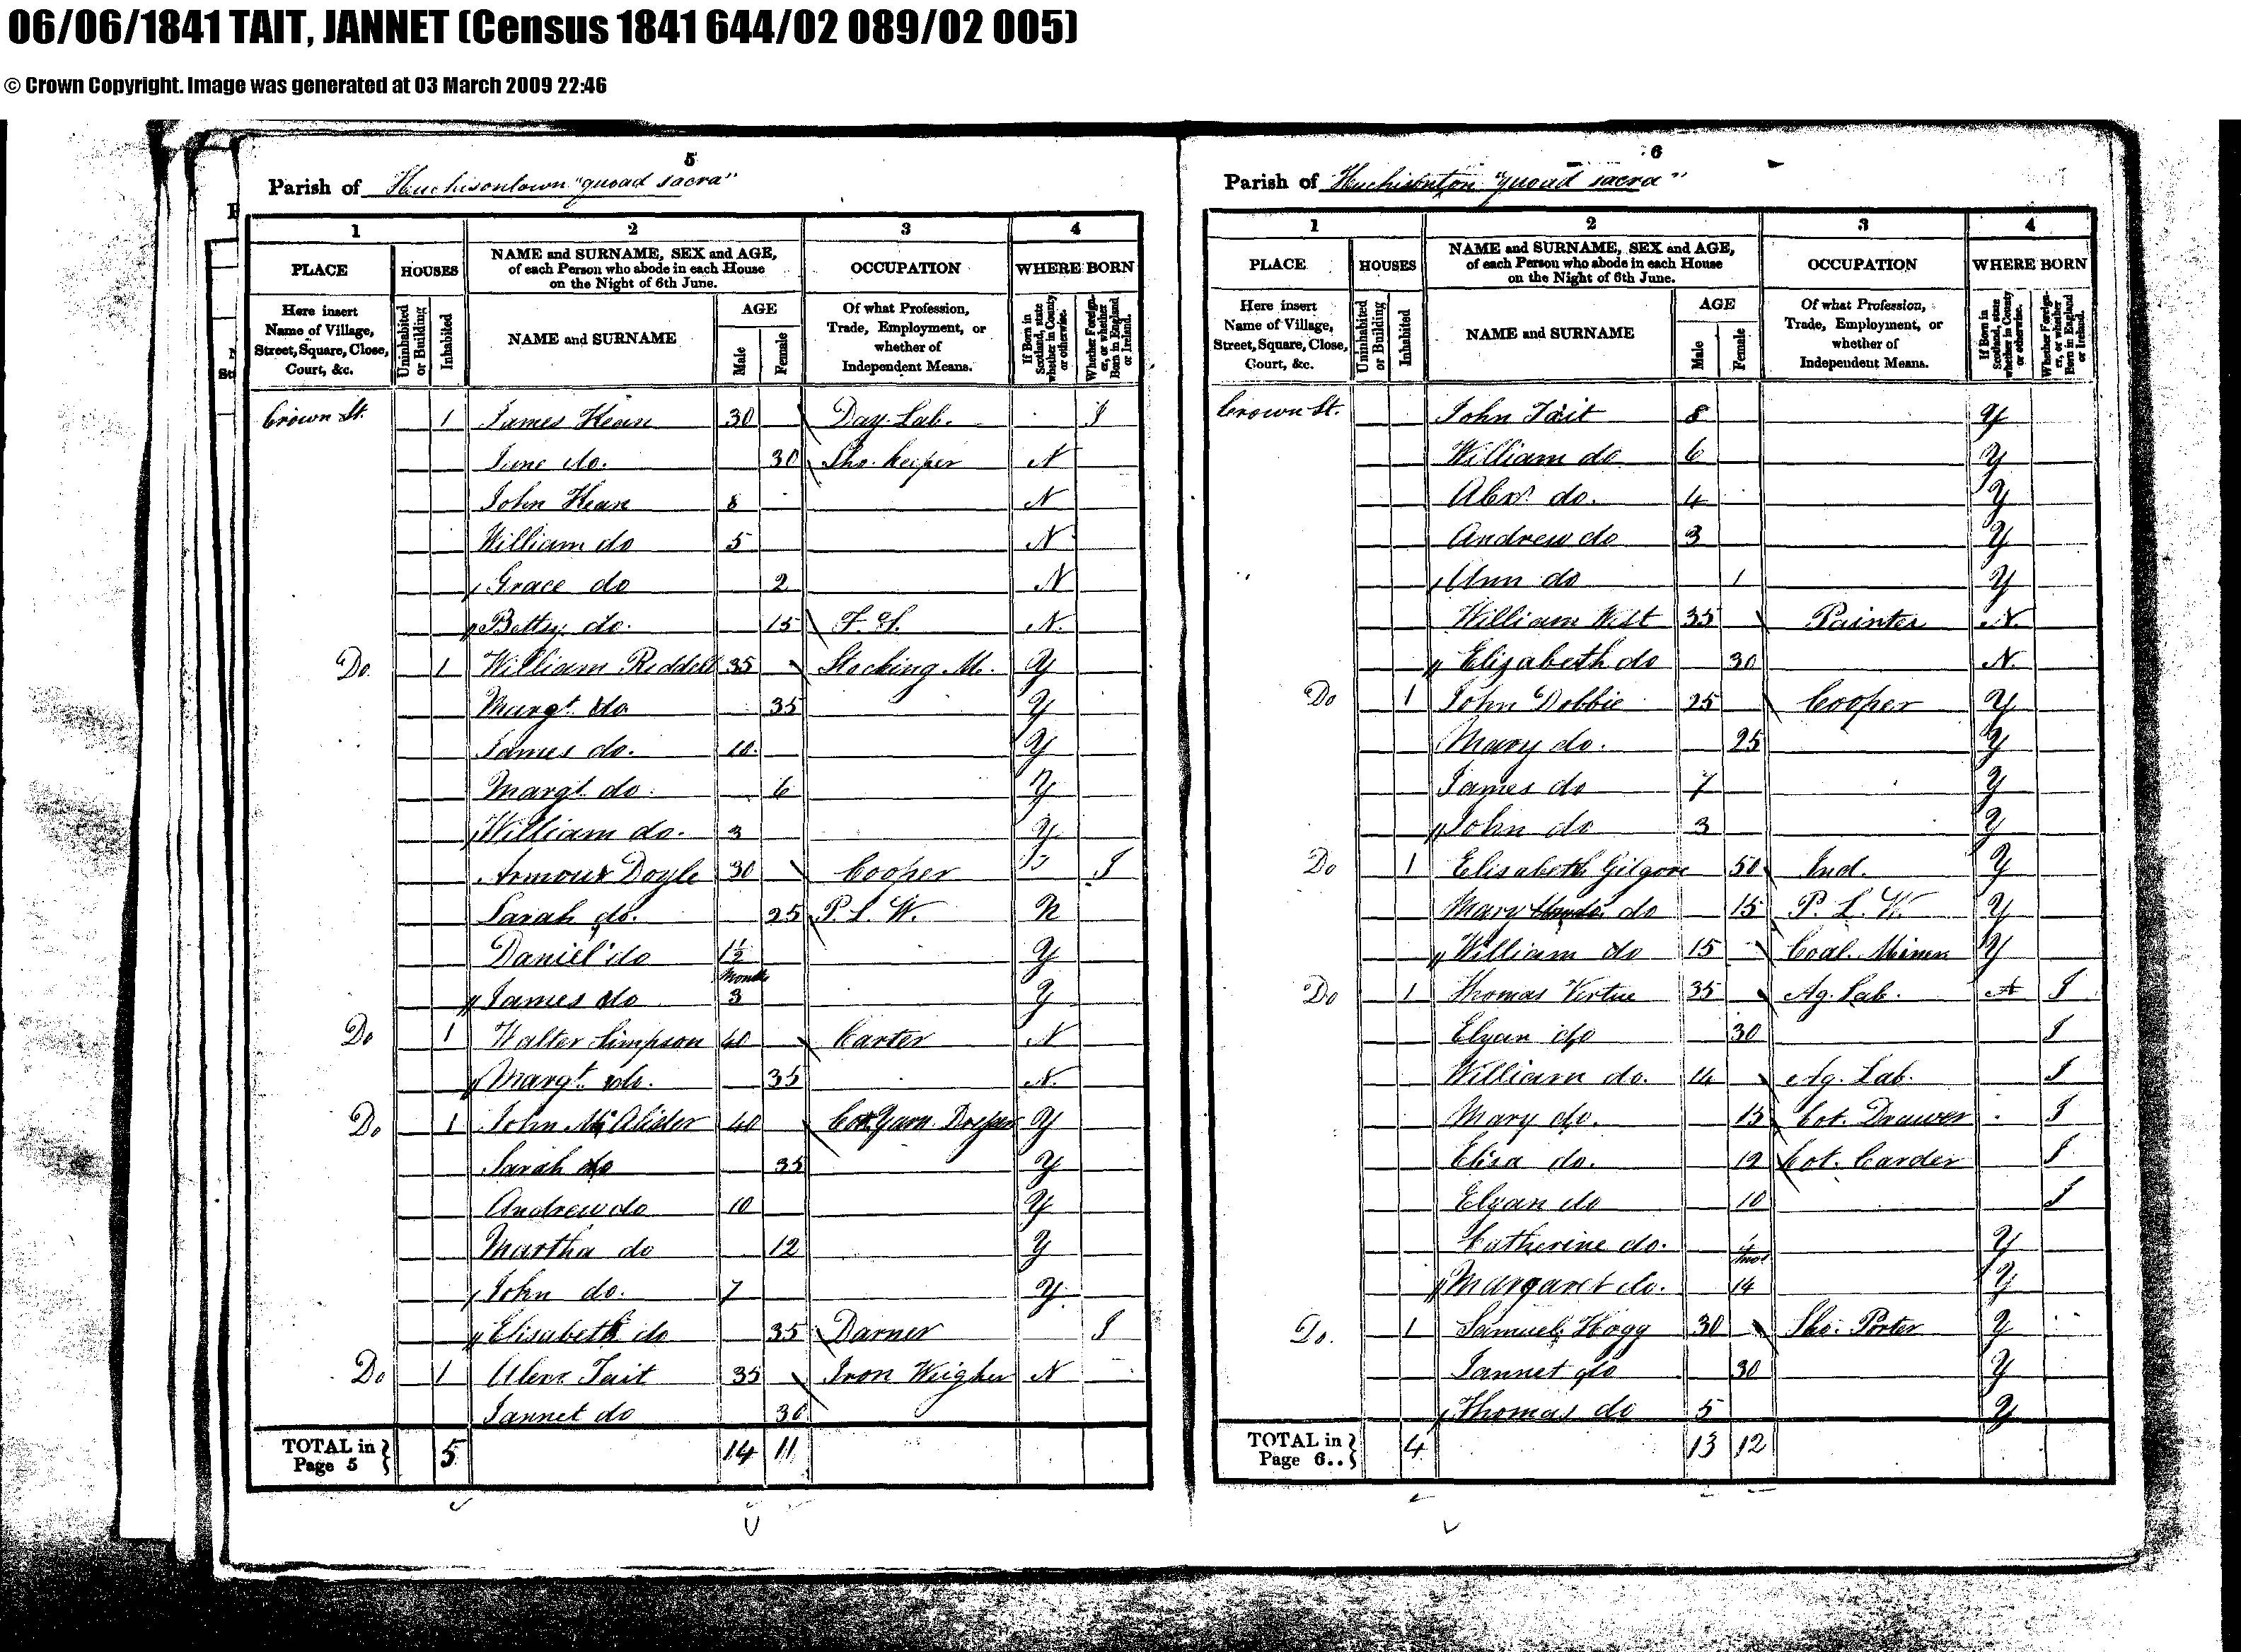 06/06/1841 TAIT, JANNET (Census 1841 644/02 089/02 005)
© Crown Copyright. Image was generated at 03 March 2009 22:46
5
Parish of Huchisontown "quoad sacra"
1 2 3 4
PLACE HOUSES NAME and SURNAME, SEX and AGE, of each Person who abode in each House on the Night of 6th June. OCCUPATION WHERE BORN
Here insert Name of Village, Street, Square, Close, Court, &c. Uninhabited or Building Inhabited NAME and SURNAME AGE Male Female Of what Profession, Trade, Employment, or whether of Independent Means. If Born in Scotland, state whether in County or otherwise. Whether Foreigner, or whether Born in England or Ireland.
Crown St. 1 James Kean 30 Day Lab. I
June do. 30 Sho. Keeper N
John Kean 8 N
William do 5 N
Grace do 2 N
Betty do. 15 F. S. N.
Do. 1 William Reddell 35 Stocking M. Y
Margt. do 35 Y
James do. 10. Y
Margt. do. 6 Y
William do. 3 Y
Armour Doyle 30 Cooper I
Sarah do. 25 P. L. W. N
Daniel do 1½ Y
James do Months 3 Y
Do 1 Walter Simpson 40 Carter N
Margt. do. 35 N.
Do 1 John McAlister 40 Cot. Yarn Y
Sarah do 35 Y
Andrew do 10 Y
Martha do 12 Y
John do. 7 Y
Elisabeth do 35 Darner I
Do 1 Alexr Tait 35 Iron Weigher N
Jannet do 30
TOTAL in Page 5 } 5 14 11
6
Parish of Huchisonton "quoad sacra"
1 2 3 4
PLACE HOUSES NAME and SURNAME, SEX and AGE, of each Person who abode in each House on the Night of 6th June. OCCUPATION WHERE BORN
Here insert Name of Village, Street, Square, Close, Court, &c. Uninhabited or Building Inhabited NAME and SURNAME AGE Male Female Of what Profession, Trade, Employment, or whether of Independent Means. If Born in Scotland, state whether in County or otherwise. Whether Foreigner, or whether Born in England or Ireland.
Crown St. John Tait 8 Y
William do 6 Y
Alexr. do. 4 Y
Andrew do 3 Y
Ann do 1 Y
William West 35 Painter N.
Elizabeth do 30 N.
Do 1 John Dobbie 25 Cooper Y
Mary do. 25 Y
James do 7 Y
John do 3 Y
Do 1 Elisabeth Gilgore 50 Ind. Y
Mary do 15 P. L. W. Y
William do 15 Coal Miner Y
Do 1 Thomas Virtue 35 Ag. Lab. I
Elyan do 30 I
William do. 14 Ag. Lab. I
Mary do. 13 Cot. Drawer I
Elisa do. 12 Cot. Carder I
Elyan do 10 I
Catherine do. Y
Margaret do. mos 14 Y
Do. 1 Samuel Hogg 30 Sho. Porter Y
Jannet do 30 Y
Thomas do 5 Y
TOTAL in Page 6.. } 4 13 12